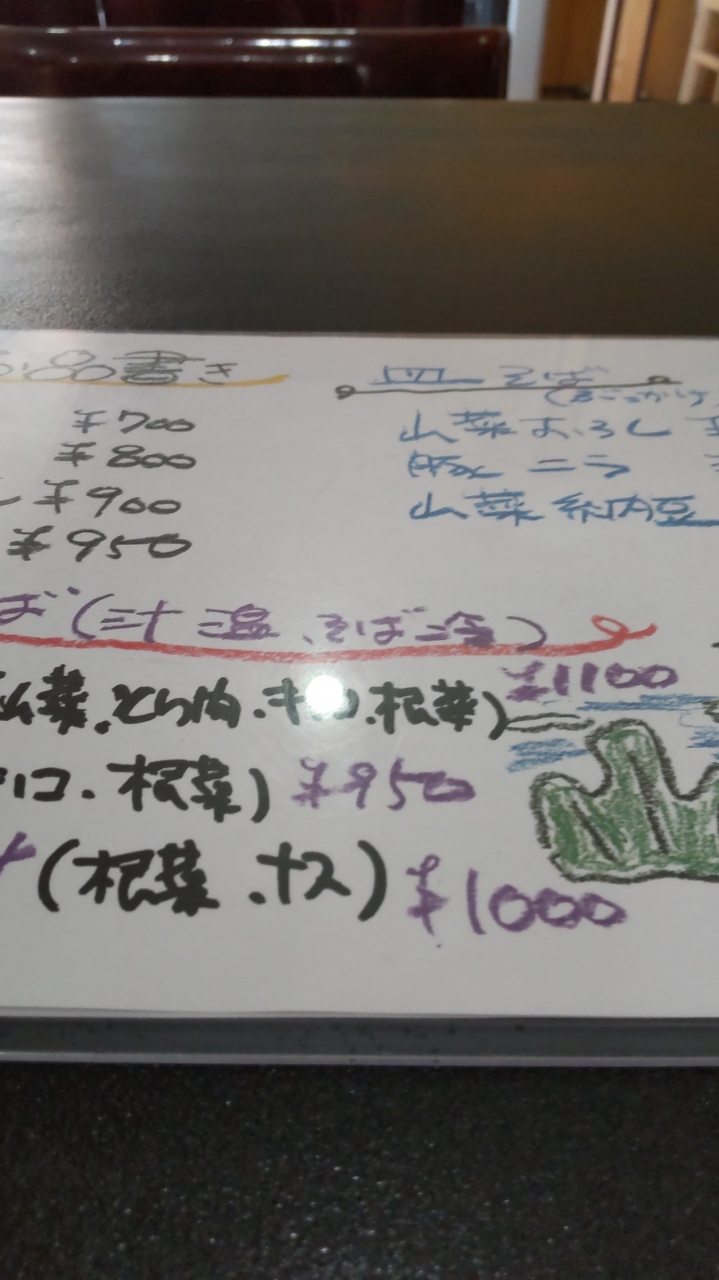 品書き
¥700
¥800
し ¥900
¥950
皿そば
(ぶっかけ
山菜おろし ¥
豚ニラ
山菜 納豆
ば(汁 温、そば冷)
山菜、とり肉、キノコ、根菜) ¥1100
根菜) ¥950
(根菜、ナス) ¥1000